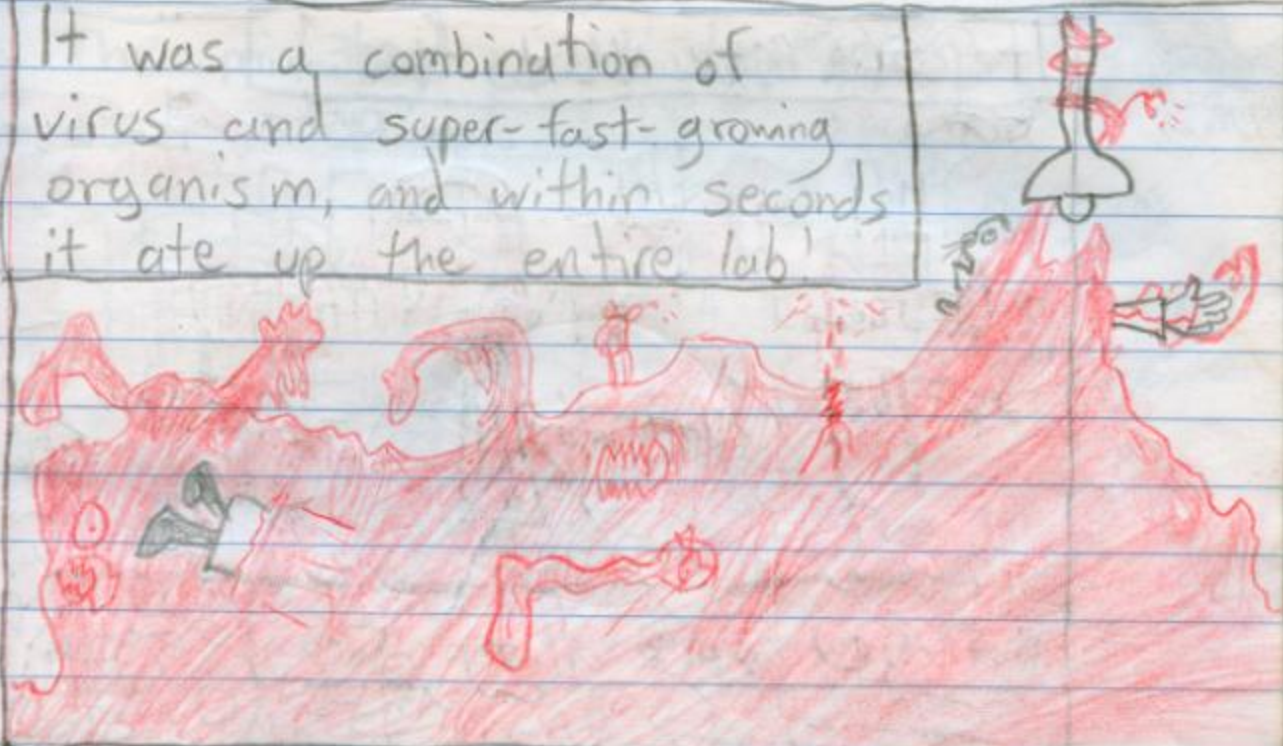 It was a combination of
virus and super-fast-growing
organism, and within seconds
it ate up the entire lab!